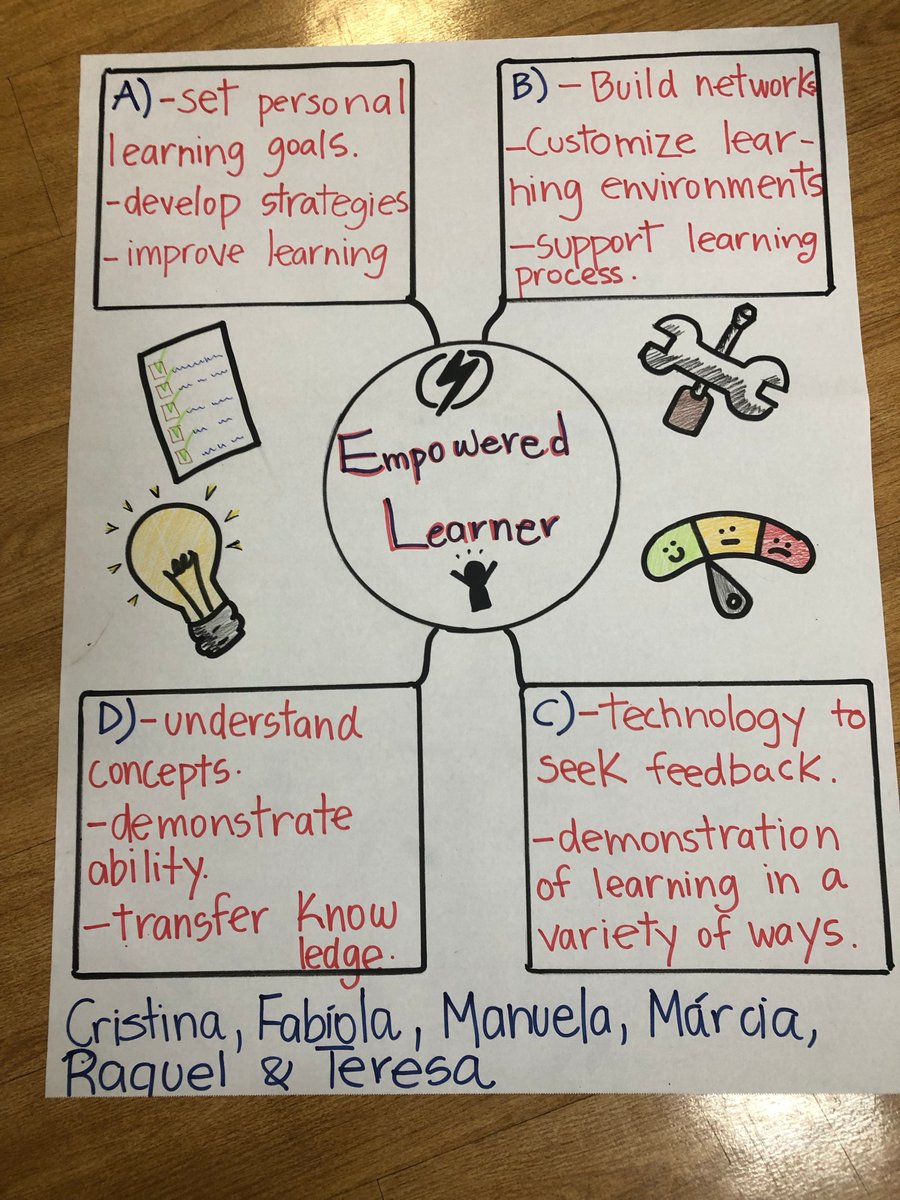 A) -set personal
learning goals.
-develop strategies
- improve learning
B) - Build networks
-Customize lear-
ning environments
-support learning
process.
Empowered
Learner
D)-understand
concepts.
-demonstrate
ability.
-transfer Know
ledge.
C)-Technology to
seek feedback.
-demonstration
of learning in a
variety of ways.
Cristina, Fabíola, Manuela, Márcia,
Raquel & Teresa